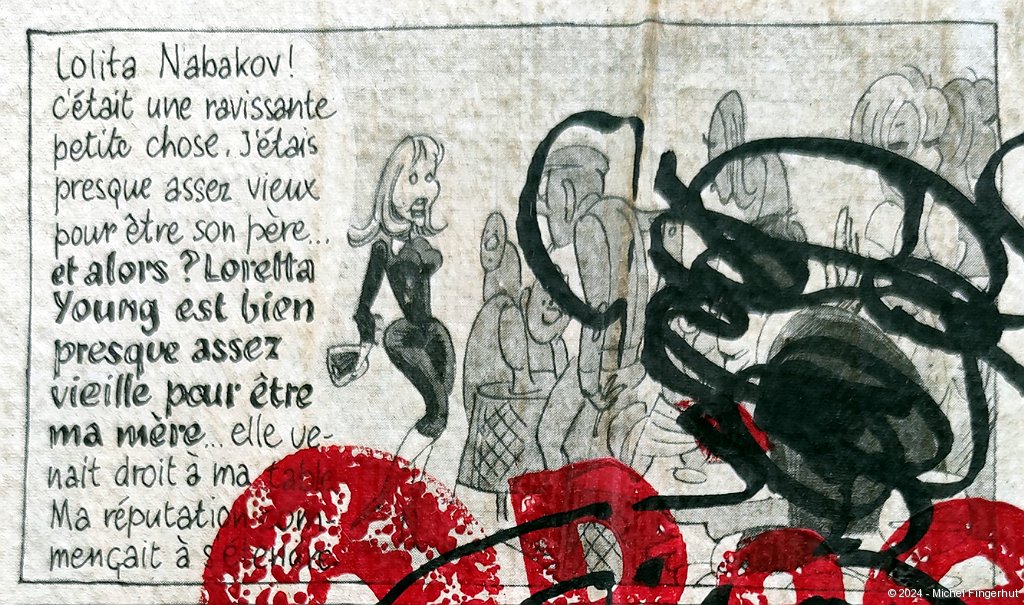 Lolita Nabakov!
c'était une ravissante
petite chose. J'étais
presque assez vieux
pour être son père...
et alors ? Loretta
Young est bien
presque assez
vieille pour être
ma mère... elle ve-
nait droit à ma table
Ma réputation com-
mençait à s'étendre
© 2024 - Michel Fingerhut